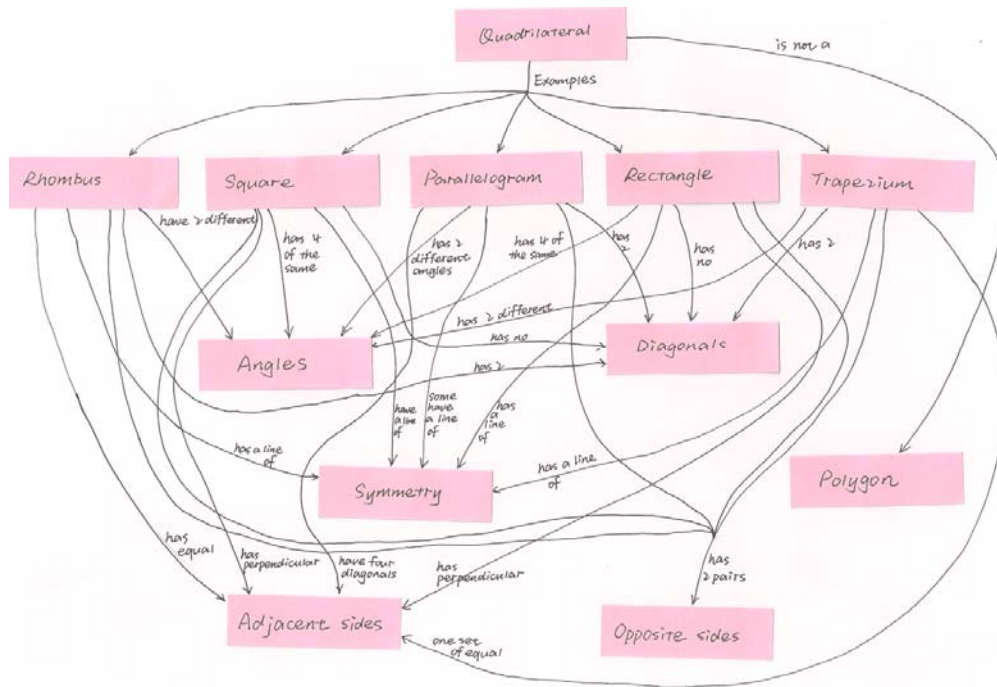 Quadrilateral
is not a
Examples
Rhombus
Square
Parallelogram
Rectangle
Trapezium
have 2 different
has 4
of the
same
has 2
different
angles
has 4 of
the same
has
2
has
no
has 2
has 2 different
has no
Angles
Diagonals
has 2
have
a line
of
some
have
a line
of
has
a
line
of
has a line
of
has a line
of
Symmetry
Polygon
has
equal
has
perpendicular
have four
diagonals
has
perpendicular
has
2 pairs
Adjacent sides
Opposite sides
one set
of equal